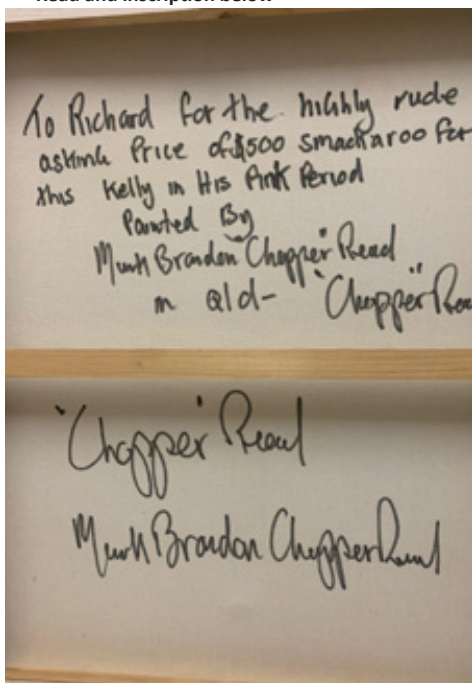 Read and Inscription below
To Richard for the highly rude
asking Price of $500 smackaroo for
this Kelly in His Pink Period
Painted By
Mark Brandon "Chopper" Read
in Qld - "Chopper"
"Chopper" Read
Mark Brandon Chopper Read